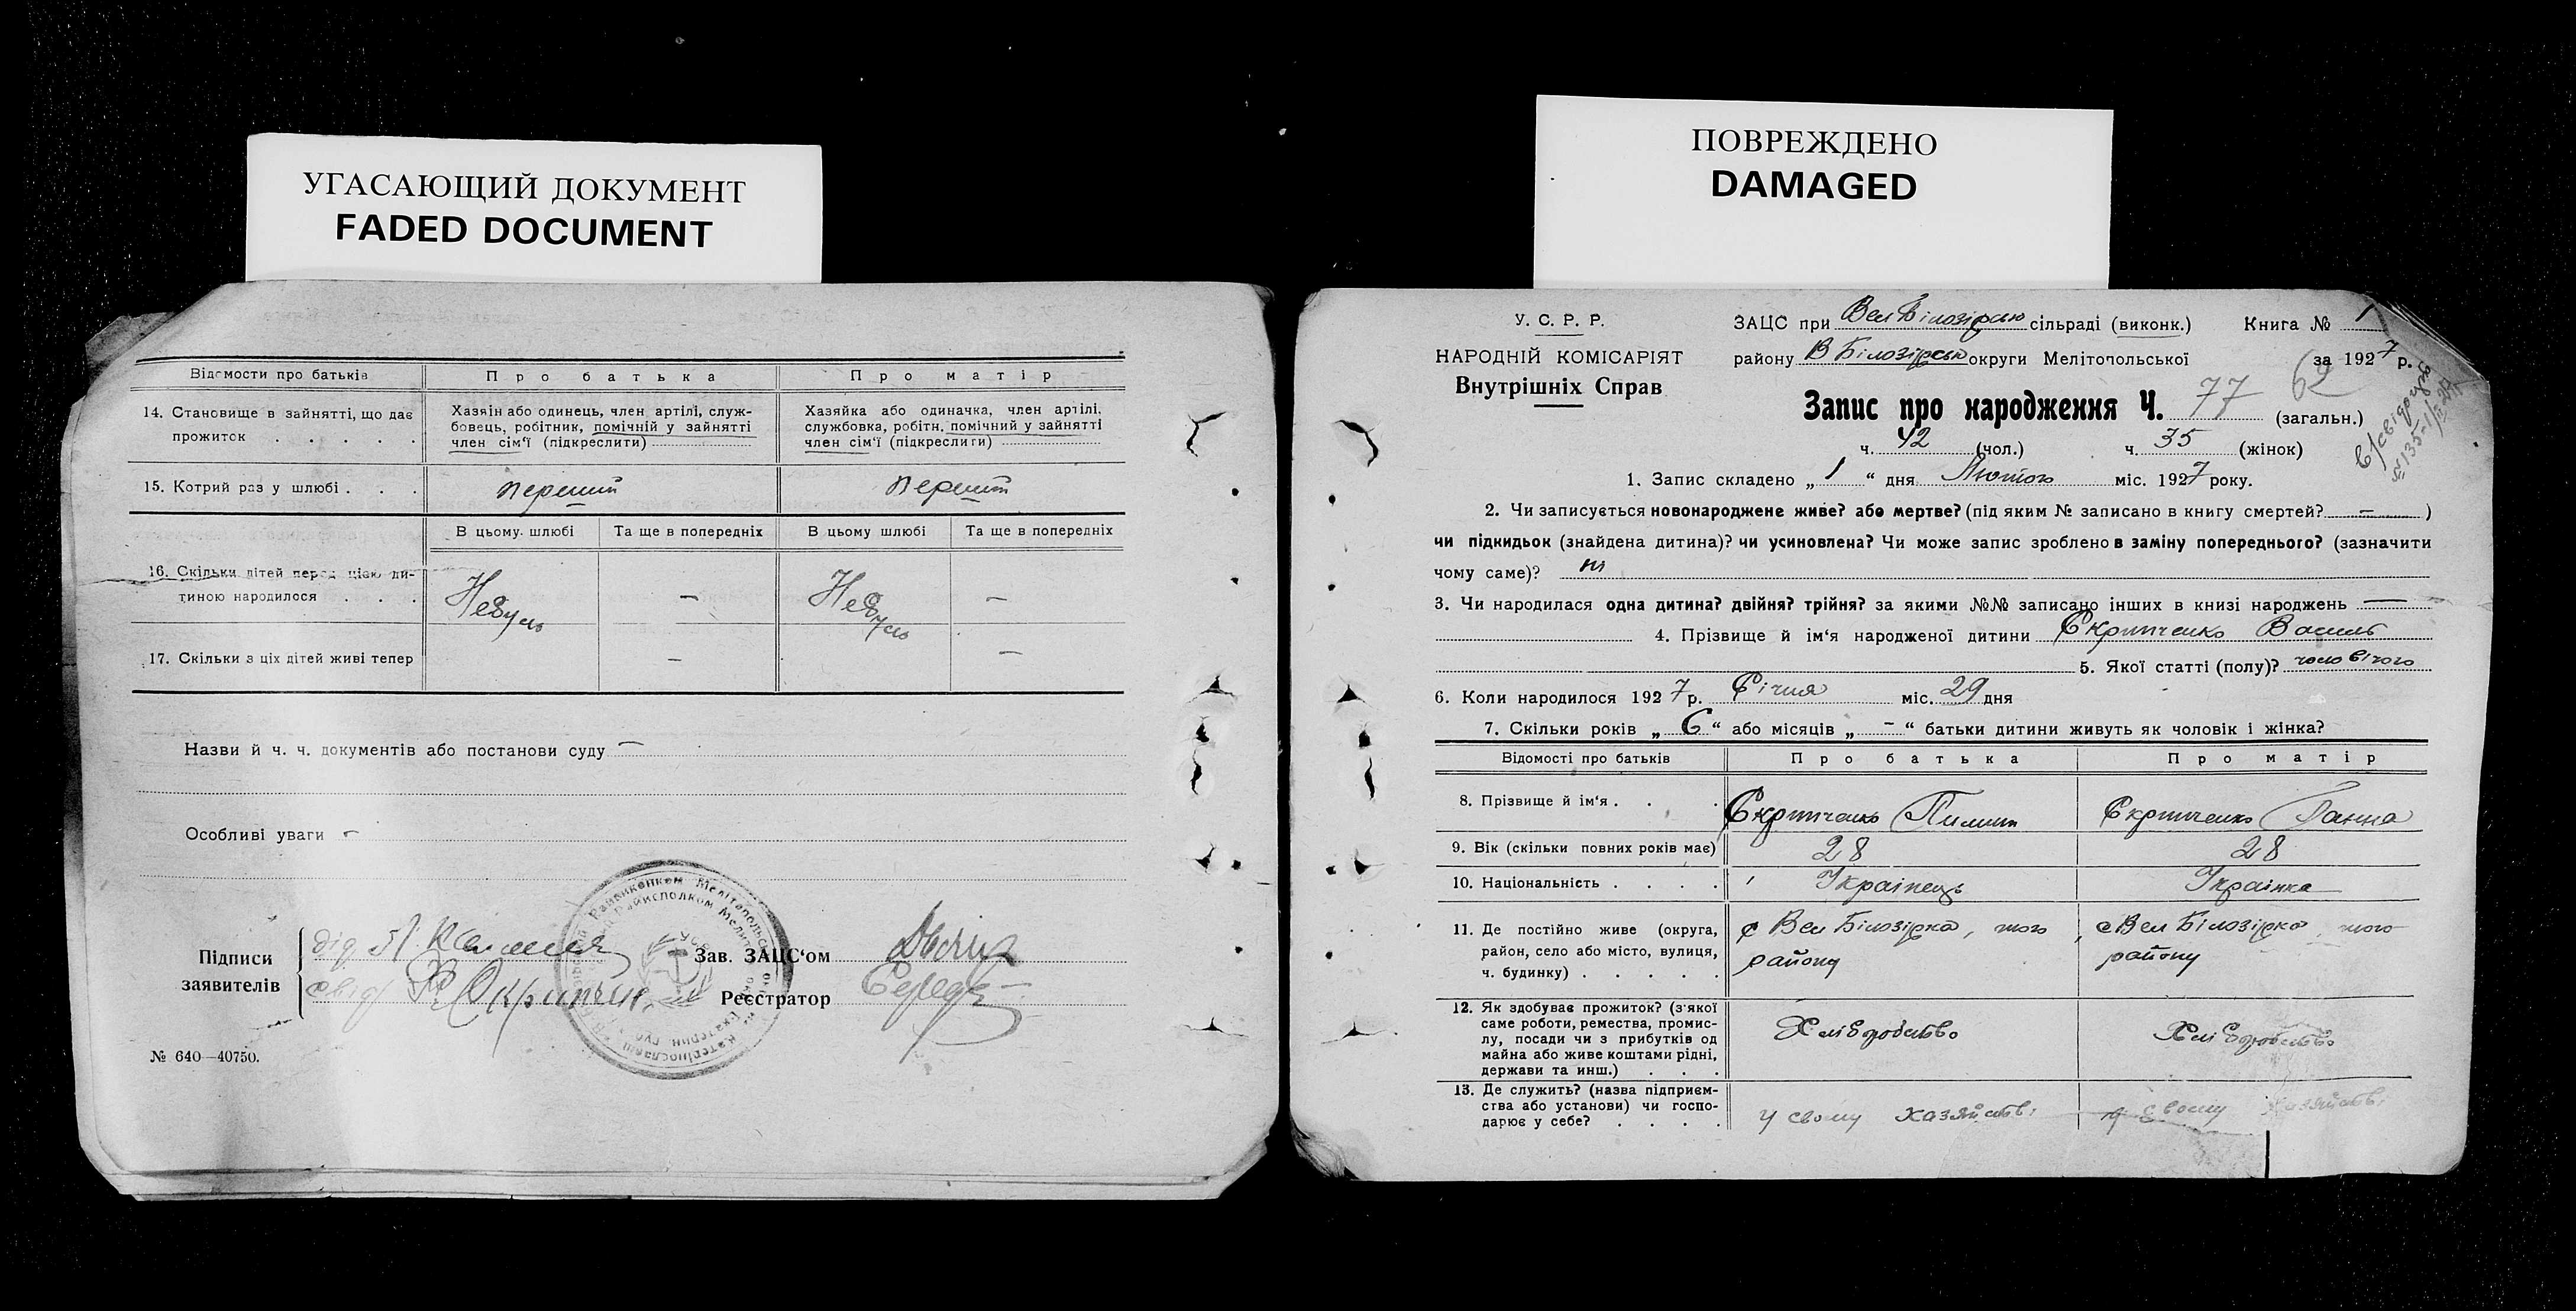 УГАСАЮЩИЙ ДОКУМЕНТ
FADED DOCUMENT
Відомости про батьків Про батька Про матір
14. Становище в зайнятті, що дає прожиток . . . . .
Хазяін або одинець, член артілі, служ-
бовець, робітник, помічній у зайнятті
член сім'ї (підкреслити)
Хазяйка або одиначка, член артілі,
службовка, робітн. помічний у зайнятті
член сім'ї (підкреслиги)
15. Котрий раз у шлюбі . . . перший перший
В цьому шлюбі Та ще в попередніх В цьому шлюбі Та ще в попередніх
16. Скільки дітей перед цією ди-
тиною народилося . . . — —
17. Скільки з ціх дітей живі тепер — —
Назви й ч. ч. документів або постанови суду —
Особливі уваги —
Підписи
заявителів
Зав. ЗАЦС'ом
Реєстратор
№ 640—40750.
ПОВРЕЖДЕНО
DAMAGED
У. С. Р. Р.
НАРОДНІЙ КОМІСАРІЯТ
Внутрішніх Справ
ЗАЦС при Вел Білозірською сільраді (виконк.) Книга № 1
району В Білозірськ округи Мелітопольської за 1927 р.
62
Запис про народження Ч. 77 (загальн.)
ч. 42 (чол.) ч. 35 (жінок)
1. Запис складено „ 1 “ дня Лютого міс. 1927 року.
2. Чи записується новонароджене живе? або мертве? (під яким № записано в книгу смертей? — )
чи підкидьок (знайдена дитина)? чи усиновлена? Чи може запис зроблено в заміну попереднього? (зазначити
чому саме)? ні
3. Чи народилася одна дитина? двійня? трійня? за якими №№ записано інших в книзі народжень —
4. Прізвище й ім'я народженої дитини Скрипченко Василь
5. Якої статті (полу)? чоловічого
6. Коли народилося 1927 р. Січня міс. 29 дня
7. Скільки років „ 6 “ або місяців „ – “ батьки дитини живуть як чоловік і жінка?
Відомості про батьків Про батька Про матір
8. Прізвище й ім'я . . . Скрипченко Пилип Скрипченко Ганна
9. Вік (скільки повних років має) 28 28
10. Національність . . . . Українець Українка
11. Де постійно живе (округа,
район, село або місто, вулиця,
ч. будинку) . . . . .
с Вел Білозірка, того
району
с Вел Білозірка, того
району
12. Як здобуває прожиток? (з якої
саме роботи, ремества, промис-
лу, посади чи з прибутків од
майна або живе коштами рідні,
держави та инш.) . . .
Хліборобство Хліборобство
13. Де служить? (назва підприєм-
ства або установи) чи госпо-
дарює у себе? . . . .
у свому хазяйстві у свому хазяйстві